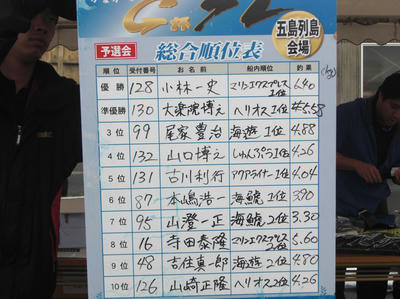 G杯
五島列島
会場
予選会 総合順位表
順位 受付番号 お名前 船内順位 釣果
(kg)
優勝 128 小林一史 マリンエクスプレス1位 6.40
準優勝 130 大衆院博之 ヘリオス1位 5.58
3位 99 尾家豊治 海遊1位 4.88
4位 132 山口博之 しゅんぷう1位 4.26
5位 131 古川利行 アクアライナー1位 4.04
6位 87 本嶋浩一 海鯱1位 3.90
7位 95 山澄一正 海鯱2位 3.30
8位 16 寺田泰隆 マリンエクスプレス2位 5.60
9位 48 吉住真一郎 海遊2位 4.80
10位 126 山崎正隆 ヘリオス2位 4.26